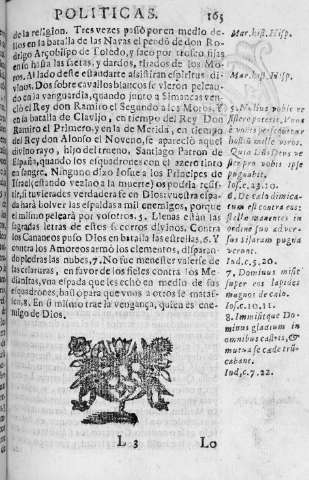 POLITICAS. 165
de la religion. Tres vezes passò por en medio de-
llos en la batalla de las Navas el pendõ de don Ro-
drigo Arçobispo de Toledo, y sacò por trofeo fixas
en su hasta las saetas, y dardos, tirados de los Mo-
ros. Al lado deste estandarte assistirán espiritus di-
vinos. Dos sobre cavallos blancos se vieron pelean-
do en la vanguardia, quando junto a Simancas ven-
ciò el Rey don Ramiro el Segundo a los Moros. Y
en la batalla de Clavijo, en tiempo del Rey Don
Ramiro el Primero, y en la de Merida, en tiempo
del Rey don Alonso el Noveno, se apareciò aquel
divino rayo, hijo del trueno, Santiago Patron de
España, guiando los esquadrones con el azero tinto
en sangre. Ninguno dixo Iosue a los Principes de
Israel (estando vezino a la muerte) os podrà resis-
tir, si tuvieredes verdadera fe en Dios: vuestra espa-
da harà bolver las espaldas a mil enemigos, porque
el mismo pelearà por vosotros. 5. Llenas están las
sagradas letras de estos socorros divinos. Contra
los Cananeos puso Dios en batalla las estrellas, 6. Y
contra los Amoreos armò los elementos, disparan-
do piedras las nubes, 7. No fue menester valerse de
las criaturas, en favor de los fieles contra los Ma-
dianitas, vna espada que les echò en medio de sus
esquadrones, bastò para que vnos a otros se matas-
sen, 8. En si mismo trae la vengança, quien es ene-
migo de Dios.
Mar. hist. Hisp.
Mar. hist. Hisp.
5. Nullus vobis re-
sistere poterit, Vnus
è vobis persequetur
hostiũ mille viros.
Quia Dñs Deus ve-
ster pro vobis ipse
pugnabit.
Ios. c. 23. 10.
6. De cælo dimica-
tum est contra eos:
stellæ manentes in
ordine suo adver-
sus Sisaram pugna
verunt.
Iud. c. 5. 20.
7. Dominus misit
super eos lapides
magnos de cælo.
Ios. c. 10. 11.
8. Immisitque Do-
minus gladium in
omnibus castris, &
mutua se cæde tru-
cabant.
Iud, c. 7. 22.
L 3 Lo